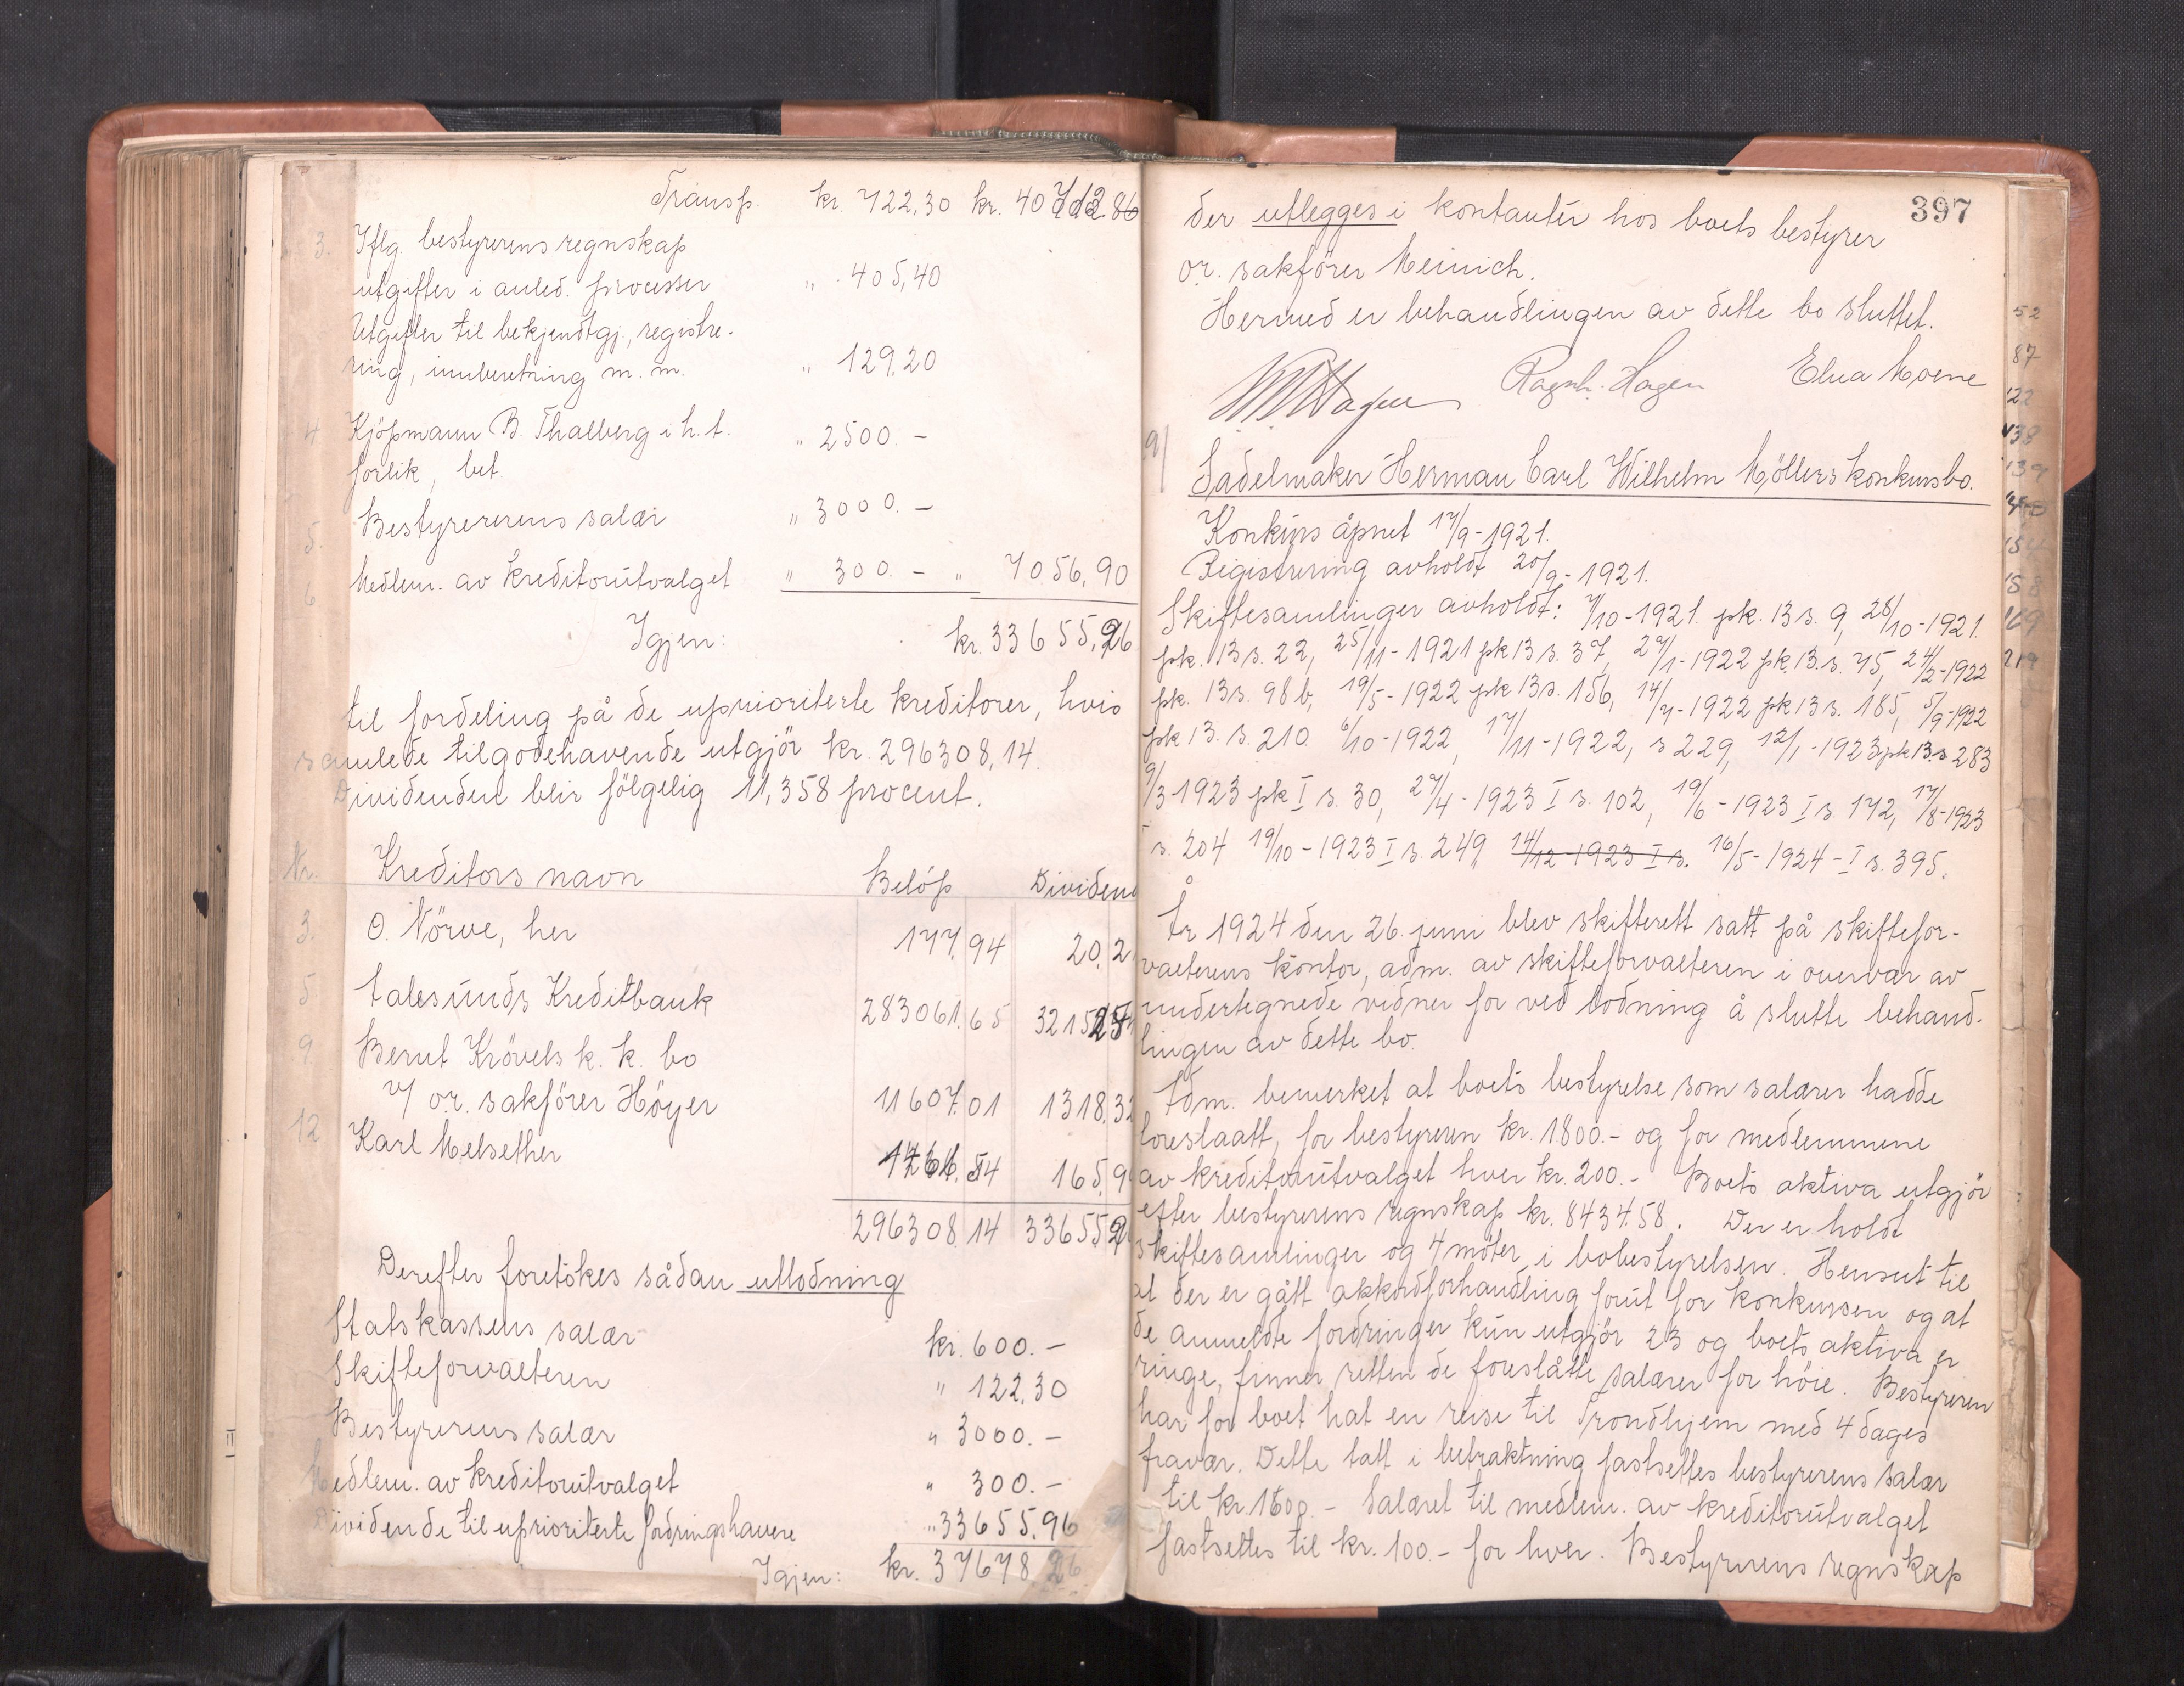 Transp. kr. 722,30 kr. 40712.86
3. Iflg. bestyrerens regnskap
utgifter i anled. processer " 405,40
Utgifter til bekjendtgj., registre-
ring, innberetning m. m. " 129,20
4. Kjöpmann B. Thalberg i h. t. " 2500.-
forlik, bet.
5. Bestyrererens salær " 3000.-
6 Medlem. av kreditorutvalget " 300.- " 7056,90
Igjen: kr. 33655,96
til fordeling på de uprioriterte kreditorer, hvis
samlede tilgodehavende utgjör kr. 296308,14.
Dividenden blir fölgelig 11,358 procent.
Nr. Kreditors navn Belöp Dividend
3. O. Nörve, her 177,94 20,2
5 Aalesunds Kreditbank 283061.65 3215
9 Bernt Krövels k. k. bo
v/ o.r. sakförer Höyer 11607.01 1318.32
12 Karl Melsether 54 165,9
296308.14 33655
Derefter foretökes sådan utlodning
Statskassens salær kr. 600.-
Skifteforvalteren " 122,30
Bestyrerens salær " 3000.-
Medlem. av kreditorutvalget " 300.-
Dividende til uprioriterte fordringshavere " 33655,96
Igjen: kr. 37678 26
397
der utlegges i kontanter hos boets bestyrer
o.r. sakförer Meinich.
Hermed er behandlingen av dette bo sluttet.
Hagen Ragnh. Hagen Elna Moene
9/ Sadelmaker Herman Carl Wilhelm Möllers konkursbo.
Konkurs åpnet 17/9-1921.
Registrering avholdt 20/9-1921.
Skiftesamlinger avholdt: 7/10-1921. pk. 13 s. 9, 28/10-1921.
pk. 13 s. 22, 25/11-1921 pk 13 s. 37, 27/1-1922 pk. 13. s. 75, 24/2-1922
pk. 13 s. 98 b, 19/5-1922 pk 13 s. 156, 14/7-1922 pk 13 s. 185, 5/9-1922
pk 13. s. 210. 6/10-1922, 17/11-1922, s 229, 12/1-1923 pk 13. s 283
9/3-1923 pk I s. 30, 27/4-1923 I s. 102, 19/6-1923 I s. 172, 17/8-1923
I s. 204 19/10-1923 I s. 249, 14/12-1923 I s. 16/5-1924-I s. 395.
År 1924 den 26. juni blev skifterett satt på skiftefor-
valterens kontor, adm. av skifteforvalteren i overvær av
undertegnede vidner for ved lodning å slutte behand-
lingen av dette bo.
Adm. bemerket at boets bestyrelse som salærer hadde
foreslaatt, for bestyreren kr. 1800.- og for medlemmene
av kreditorutvalget hver kr. 200.- Boets aktiva utgjör
efter bestyrerens regnskap kr. 8434.58. Der er holdt
skiftesamlinger og 4 möter i bobestyrelsen. Hensett til
at der er gått akkordforhandling forut for konkursen og at
de anmeldte fordringer kun utgjör 23 og boets aktiva er
ringe, finner retten de foreslåtte salærer for höie. Bestyreren
har for boet hat en reise til Trondhjem med 4 dages
fravær. Dette tatt i betraktning fastsettes bestyrerens salær
til kr. 1600.- Salæret til medlem. av kreditorutvalget
fastsettes til kr. 100.- for hver. Bestyrerens regnskap
52
87
122
138
139
154
158
169
219